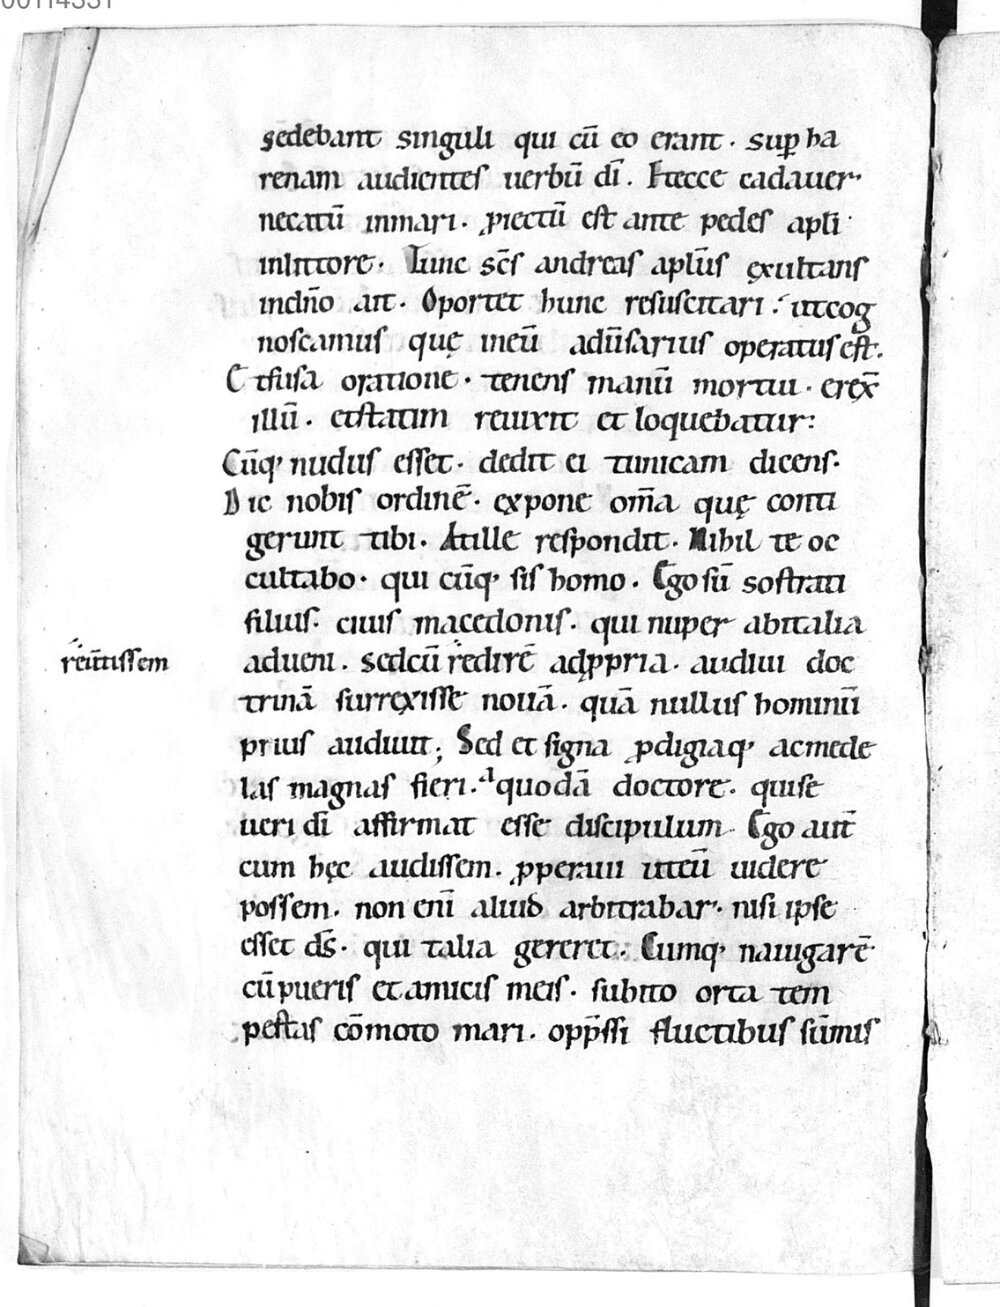 sedebant singuli qui cū eo erant. sup ha
renam audientes uerbū dī. Et ecce cadauer
necatū inmari. piectū est ante pedes apli
inlittore. Tunc scs andreas aplūs exultans
indño ait. Oportet hunc resuscitari. ut cog
noscamus quę meū aduīsarius operatus est.
Et fusa oratione. tenens manū mortui. erex̄
illū. et statim reuixit et loquebatur:
Cūq nudus esset. dedit ei tunicam dicens.
Dic nobis ordinē. expone om̄a quę conti
gerunt tibi. At ille respondit. Nihil te oc
cultabo. qui cūq sis homo. Ego sū sostrati
filius. ciuis macedonis. qui nuper abitalia
reuītissem
adueni. sed cū redirē adppria. audiui doc
trinā surrexisse nouā. quā nullus hominū
prius audiuit; Sed et signa pdigiaq ac mede
las magnas fieri. a quodā doctore. qui se
ueri dī affirmat esse discipulum. Ego aut̄
cum hęc audissem. pperaui ut eū uidere
possem. non enī aliud arbitrabar. nisi ipse
esset ds̄. qui talia gereret. Cumq nauigarē
cū pueris et amicis meis. subito orta tem
pestas cōmoto mari. opp̄ssi fluctibus sūmis